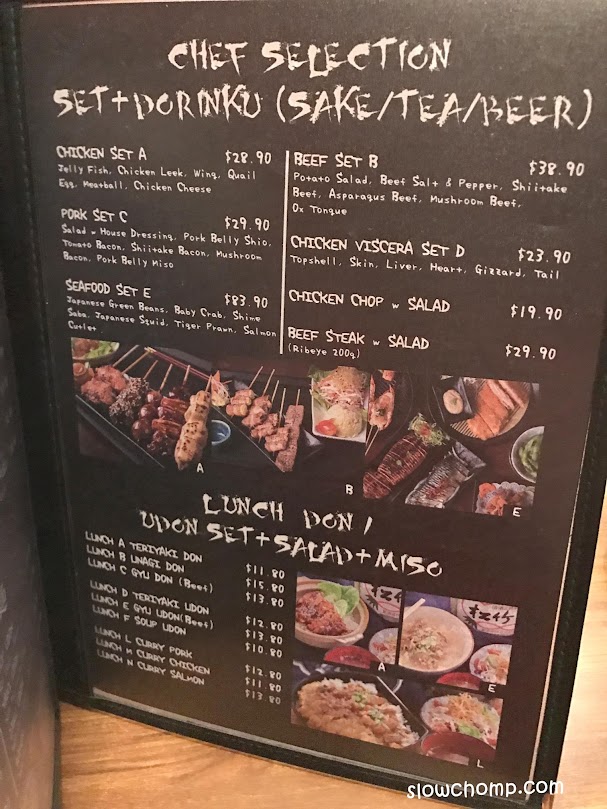 CHEF SELECTION
SET+DORINKU (SAKE/TEA/BEER)
CHICKEN SET A $28.90
Jelly Fish, Chicken Leek, Wing, Quail
Egg, Meatball, Chicken Cheese
PORK SET C $29.90
Salad w House Dressing, Pork Belly Shio,
Tomato Bacon, Shiitake Bacon, Mushroom
Bacon, Pork Belly Miso
SEAFOOD SET E $83.90
Japanese Green Beans, Baby Crab, Shime
Saba, Japanese Squid, Tiger Prawn, Salmon
Cutlet
BEEF SET B $38.90
Potato Salad, Beef Salt & Pepper, Shiitake
Beef, Asparagus Beef, Mushroom Beef,
Ox Tongue
CHICKEN VISCERA SET D $23.90
Topshell, Skin, Liver, Heart, Gizzard, Tail
CHICKEN CHOP w SALAD $19.90
BEEF STEAK w SALAD $29.90
(Ribeye 200g)
A
B
E
LUNCH DON /
UDON SET+SALAD+MISO
LUNCH A TERIYAKI DON $11.80
LUNCH B UNAGI DON $15.80
LUNCH C GYU DON (Beef) $13.80
LUNCH D TERIYAKI UDON $12.80
LUNCH E GYU UDON(Beef) $13.80
LUNCH F SOUP UDON $10.80
LUNCH L CURRY PORK $12.80
LUNCH M CURRY CHICKEN $11.80
LUNCH N CURRY SALMON $13.80
A
E
L
slowchomp.com